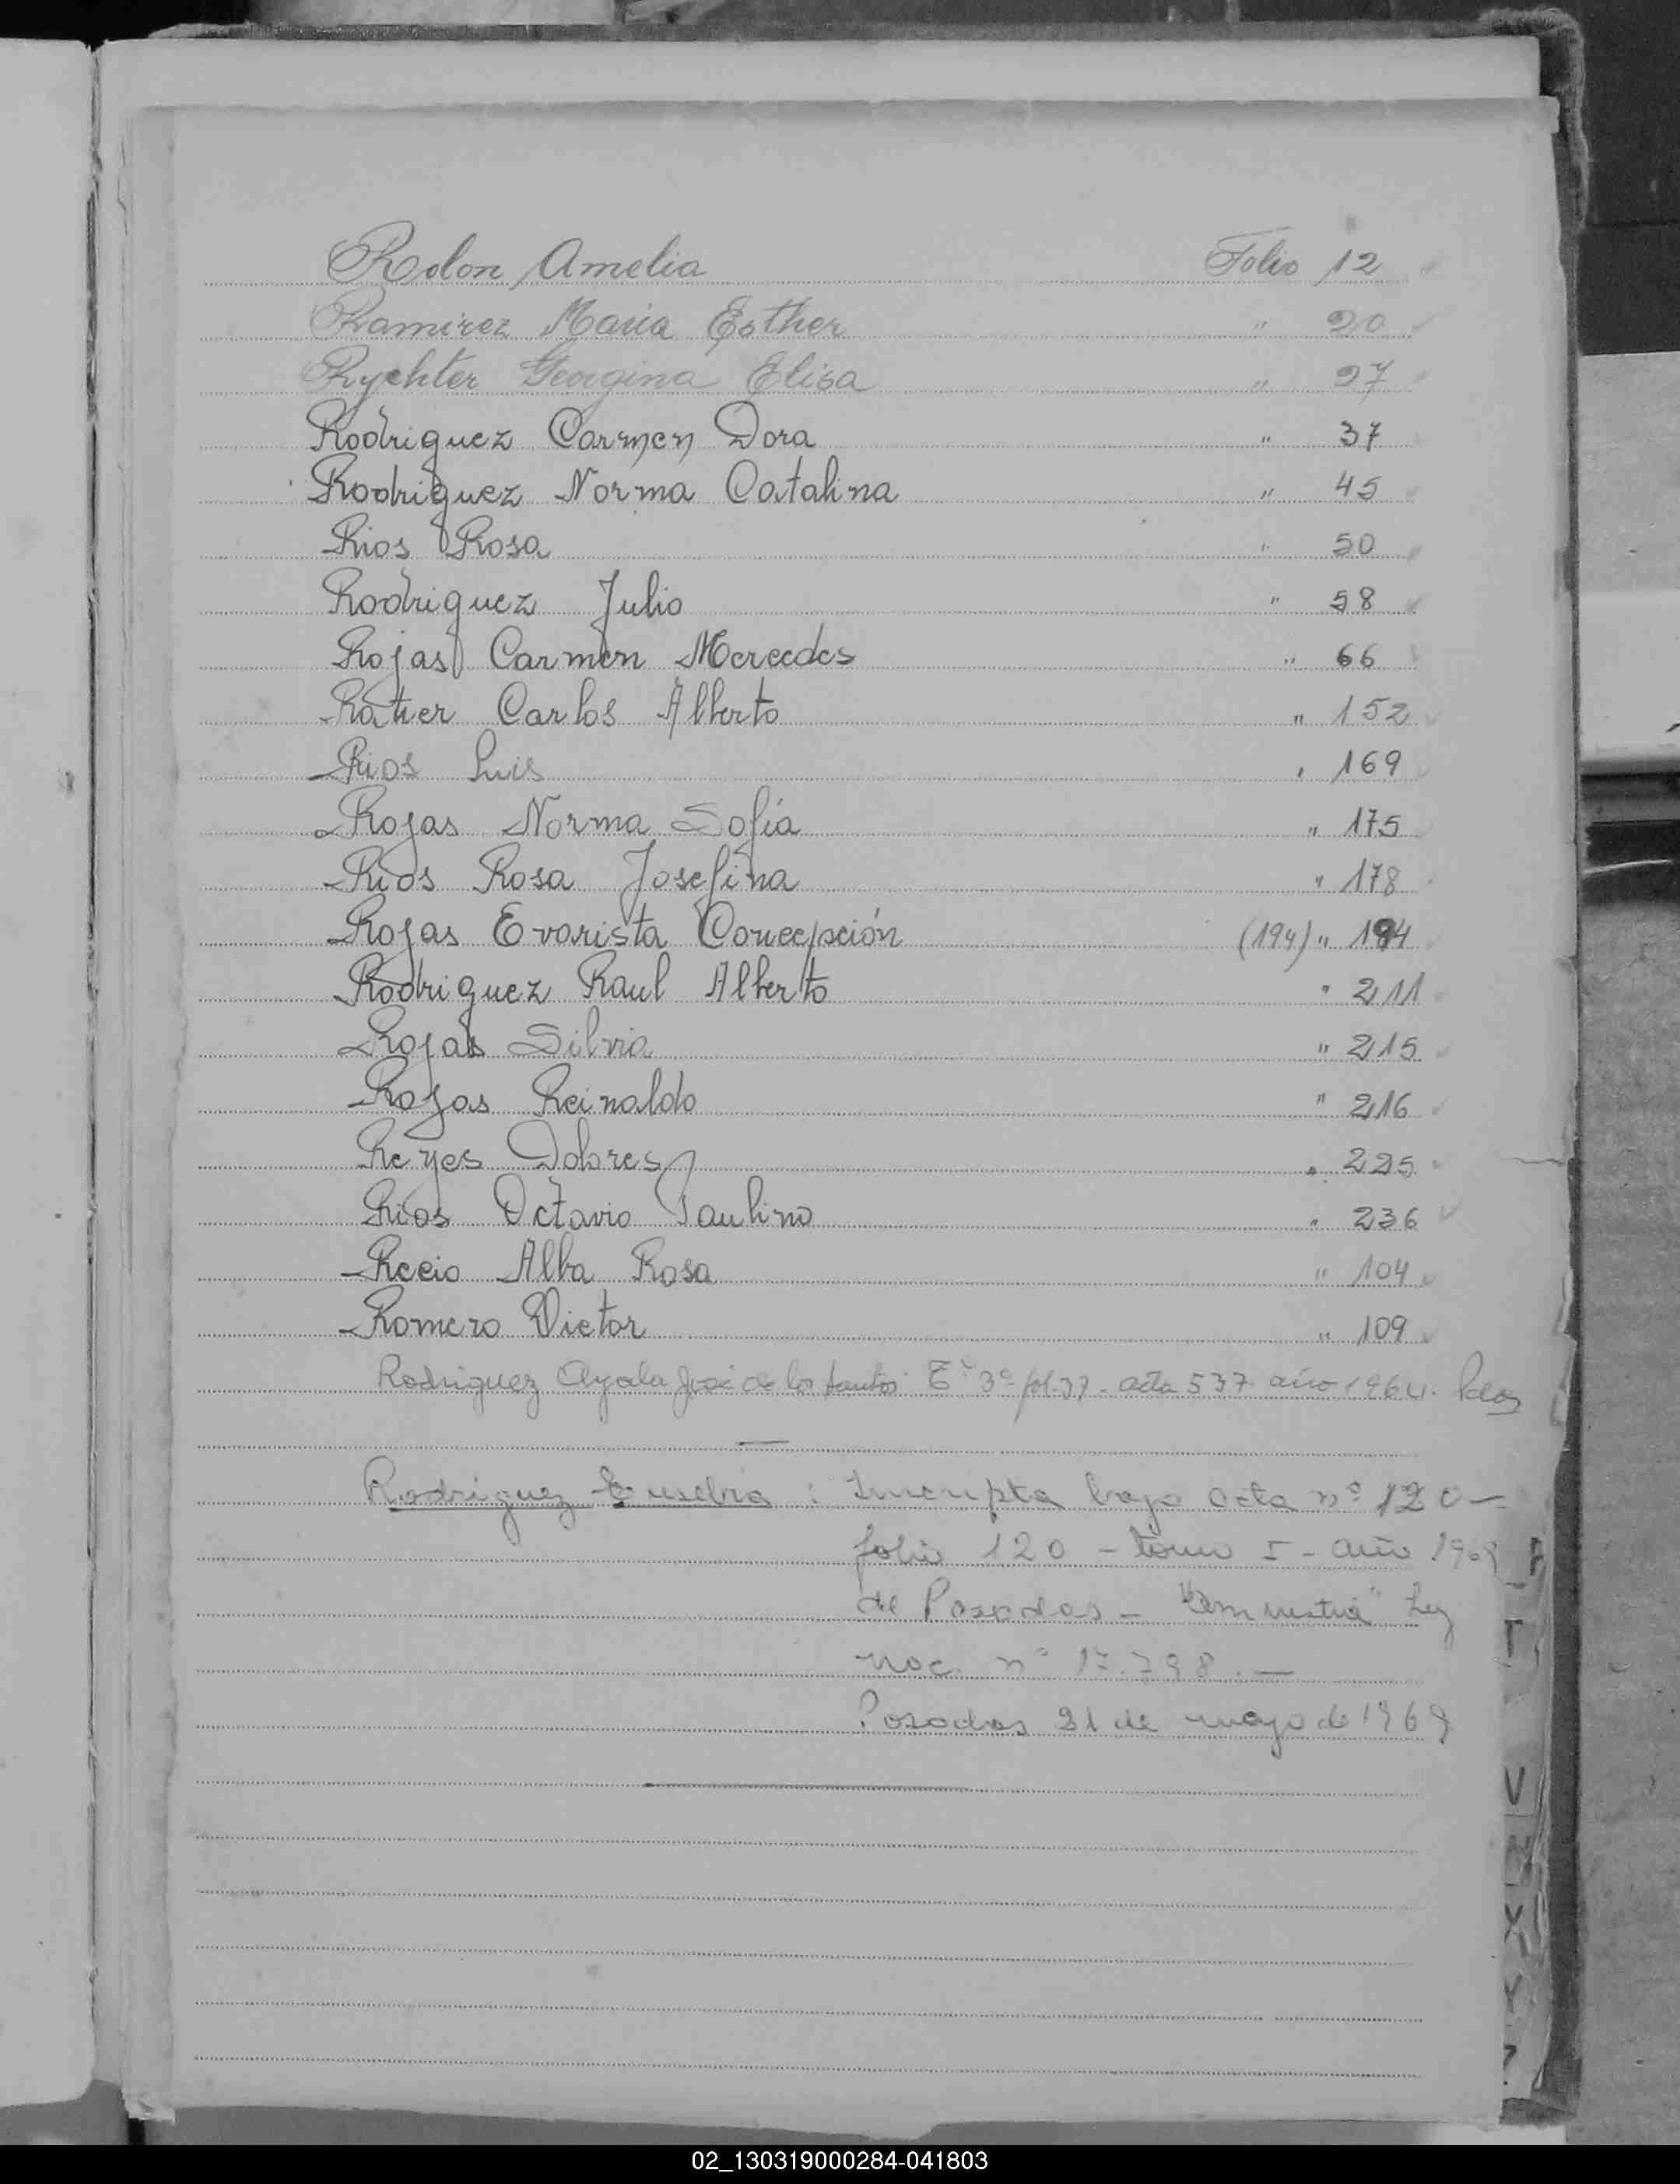 Rolon Amelia Folio 12
Ramirez Maria Esther " 20
Rychter Georgina Elisa " 27
Rodriguez Carmen Dora " 37
Rodriguez Norma Catalina " 45
Rios Rosa " 50
Rodriguez Julio " 58
Rojas Carmen Mercedes " 66
Ratier Carlos Alberto " 152
Rios Luis " 169
Rojas Norma Sofía " 175
Rios Rosa Josefina " 178
Rojas Evarista Concepción (194) " 194
Rodriguez Raul Alberto " 211
Rojas Silvia " 215
Rojas Reinaldo " 216
Reyes Dolores " 225
Rios Octavio Paulino " 236
Recio Alba Rosa " 104
Romero Victor " 109
Rodriguez Ayala José de los Santos Tº 3º fol. 37 - acta 537 año 1964. Pdas
Rodriguez Eusebia : Inscripta bajo acta nº 120 -
folio 120 - tomo I - año 1969
de Posadas - "Amnistia" Ley
nac. nº 17.798. -
Posadas 21 de mayo de 1969
T
V
X
Y
Z
02_130319000284-041803